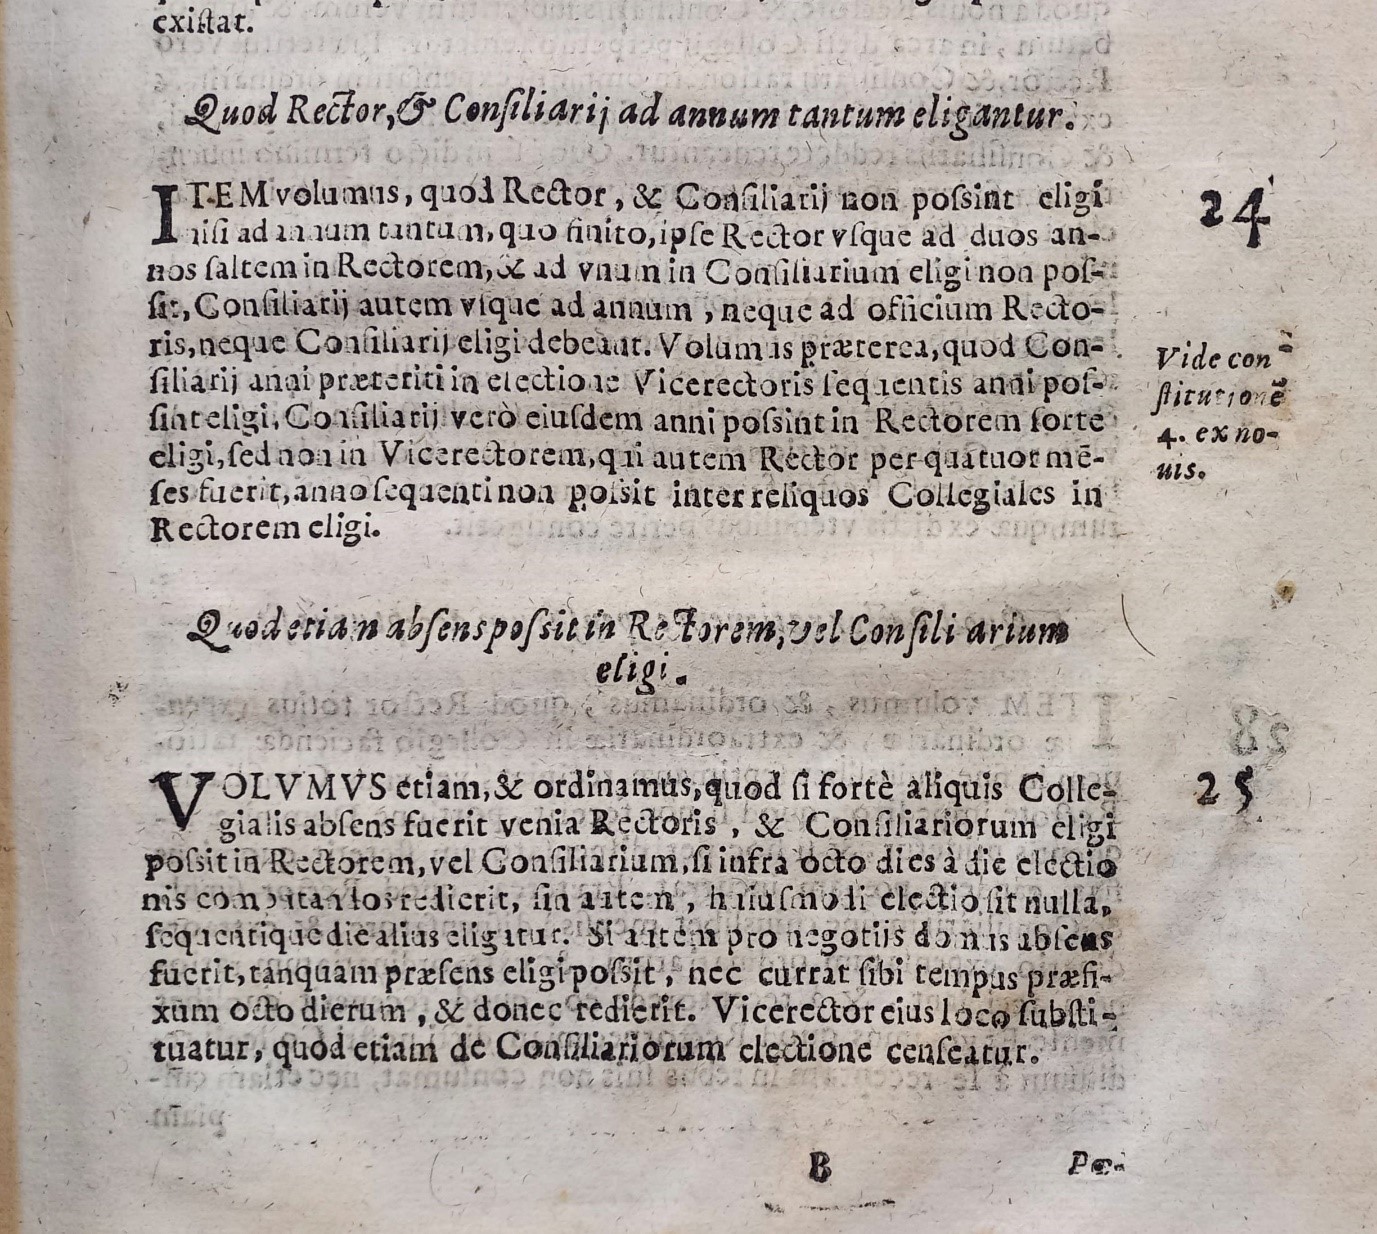 existat.
Quod Rector, & Consiliarij ad annum tantum eligantur.
ITEM volumus, quod Rector, & Consiliarij non possint eligi
nisi ad annum tantum, quo finito, ipse Rector vsque ad duos an-
nos saltem in Rectorem, & ad vnum in Consiliarium eligi non pos-
sit, Consiliarij autem vsque ad annum, neque ad officium Recto-
ris, neque Consiliarij eligi debeant. Volumus præterea, quod Con-
siliarij anni præteriti in electione Vicerectoris sequentis anni pos-
sint eligi, Consiliarij verò eiusdem anni possint in Rectorem forte
eligi, sed non in Vicerectorem, qui autem Rector per quatuor mē-
ses fuerit, anno sequenti non possit inter reliquos Collegiales in
Rectorem eligi.
24
Vide con
stitutionē
4. ex no-
uis.
Quod etiam absens possit in Rectorem, vel Consiliarium
eligi.
VOLVMVS etiam, & ordinamus, quod si fortè aliquis Colle-
gialis absens fuerit venia Rectoris, & Consiliariorum eligi
possit in Rectorem, vel Consiliarium, si infra octo dies à die electio
nis computandos redierit, sin autem, huiusmodi electio sit nulla,
sequentique die alius eligatur. Si autem pro negotijs domus absens
fuerit, tanquam præsens eligi possit, nec currat sibi tempus præfi-
xum octo dierum, & donec redierit. Vicerector eius loco substi-
tuatur, quod etiam de Consiliariorum electione censeatur.
25
B
Pœ-